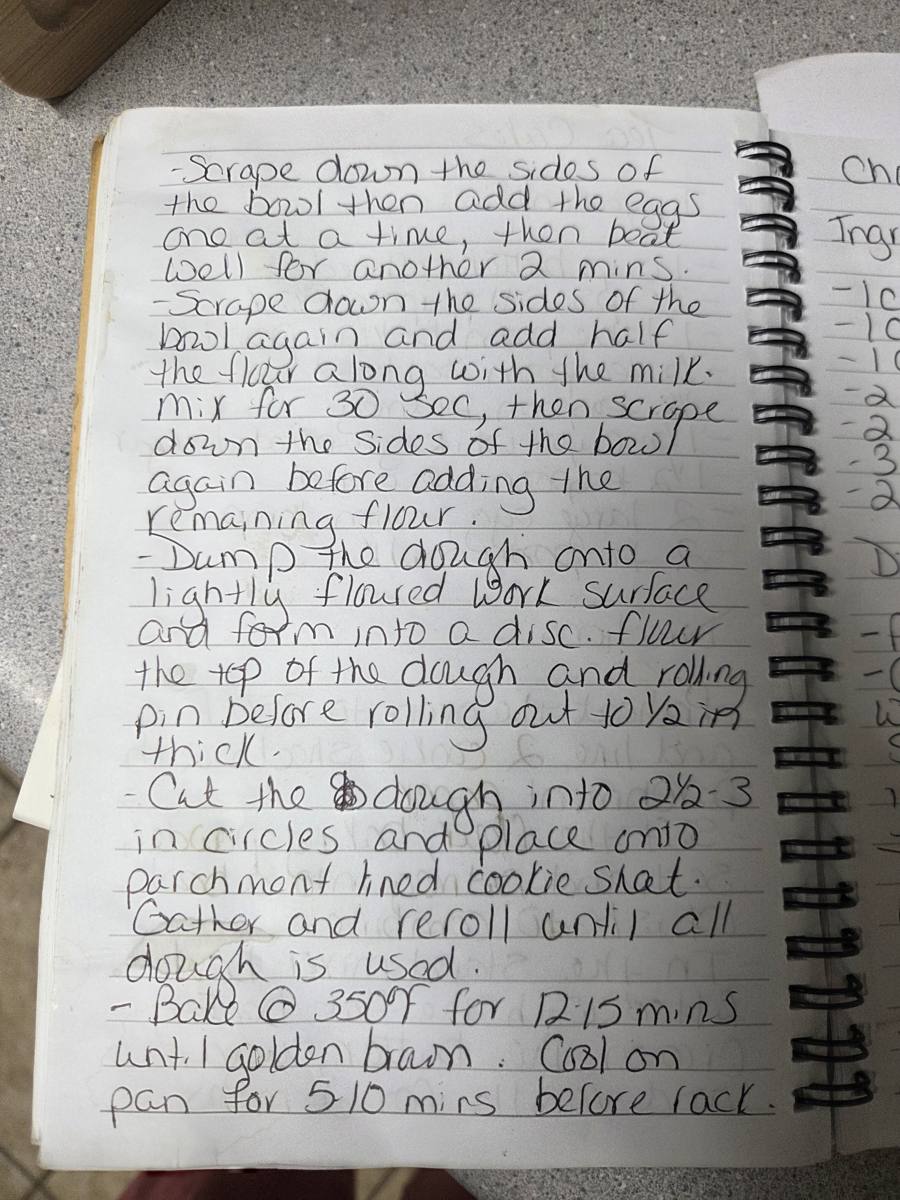 -Scrape down the sides of
the bowl then add the eggs
one at a time, then beat
well for another 2 mins.
-Scrape down the sides of the
bowl again and add half
the flour along with the milk.
mix for 30 sec, then scrape
down the sides of the bowl
again before adding the
remaining flour.
-Dump the dough onto a
lightly floured work surface
and form into a disc. flour
the top of the dough and rolling
pin before rolling out to 1/2 in
thick.
-Cut the dough into 2 1/2-3
in circles and place onto
parchment lined cookie shet.
Gather and reroll until all
dough is used.
- Bake @ 350°F for 12-15 mins
until golden brown. Cool on
pan for 5-10 mins before rack.
Ingr
-1c
-1c
-1c
-2
-2
-3
-2
D